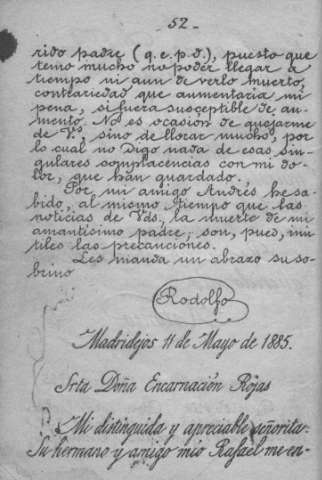 - 52 -
rido padre (q. e. p. d.), puesto que
temo mucho no poder llegar a
tiempo ni aun de verlo muerto,
contrariedad que aumentaria mi
pena, si fuera susceptible de au-
mento. No es ocasion de quejarme
de V.ˢ, sino de llorar mucho, por
lo cual no digo nada de esas sin-
gulares complacencias con mi do-
lor, que han guardado.
Por mi amigo Andrés he sa-
bido, al mismo tiempo que las
noticias de Vds, la muerte de mi
amantísimo padre; son, pues, inú-
tiles las precauciones.
Les manda un abrazo su so-
brino
Rodolfo
Madridejos 11 de Mayo de 1885.
Srta Doña Encarnación Rojas
Mi distinguida y apreciable señorita:
Su hermano y amigo mio Rafael me en-